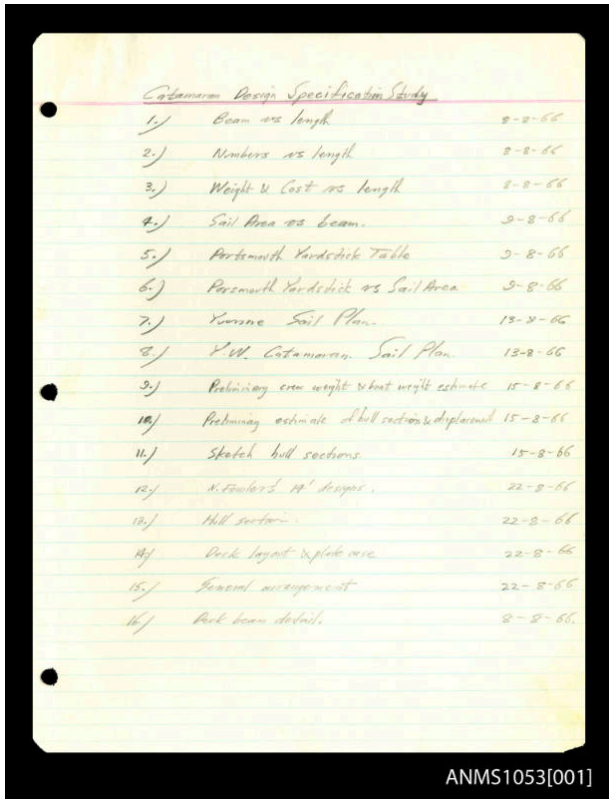 Catamaran Design Specification Study
1.) Beam vs length 8-8-66
2.) Numbers vs length 8-8-66
3.) Weight & Cost vs length 8-8-66
4.) Sail Area vs beam. 9-8-66
5.) Portsmouth Yardstick Table 9-8-66
6.) Porsmouth Yardstick vs Sail Area 9-8-66
7.) Yvonne Sail Plan. 13-8-66
8.) Y.W. Catamaran. Sail Plan. 13-8-66
9.) Preliminary crew weight & boat weight estimate 15-8-66
10.) Preliminary estimate of hull section & displacement 15-8-66
11.) Sketch hull sections. 15-8-66
12.) N. Fowlers 14' designs. 22-8-66
13.) Hull 22-8-66
14.) Deck layout & plate case 22-8-66
15.) General arrangement 22-8-66
16.) Deck beam detail. 8-8-66.
ANMS1053[001]